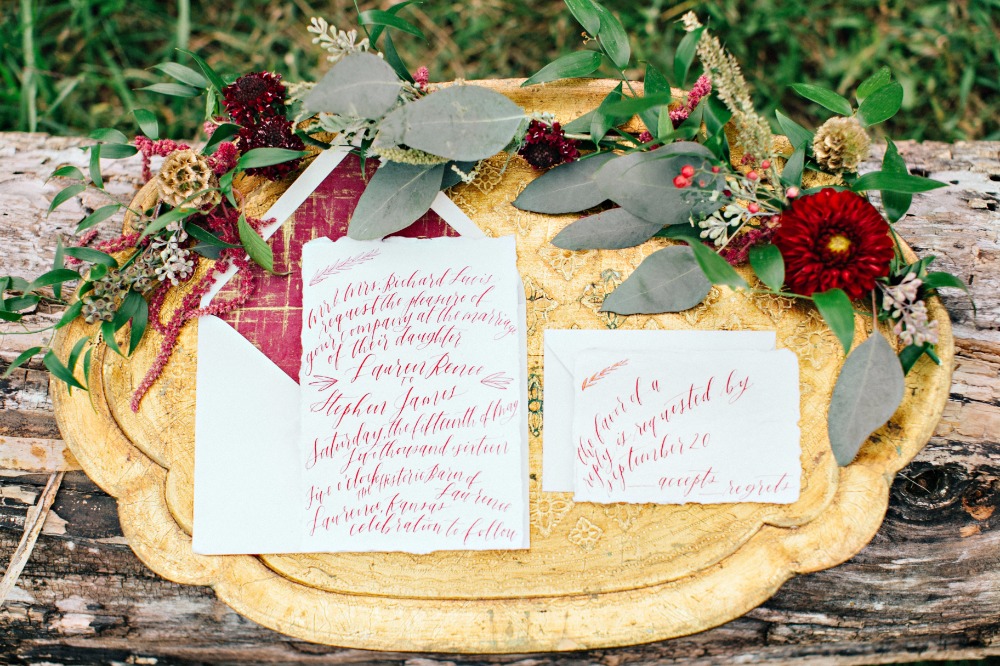 Mr & Mrs. Richard Lewis
request the pleasure of
your company at the marriage
of their daughter
Lauren Renee
to
Stephen James
Saturday, the fifteenth of May
two thousand sixteen
five o'clock
the Historic Barn of
Lawrence, Kansas Lawrence
celebration to follow
the favor of a
reply is requested by
September 20
accepts regrets